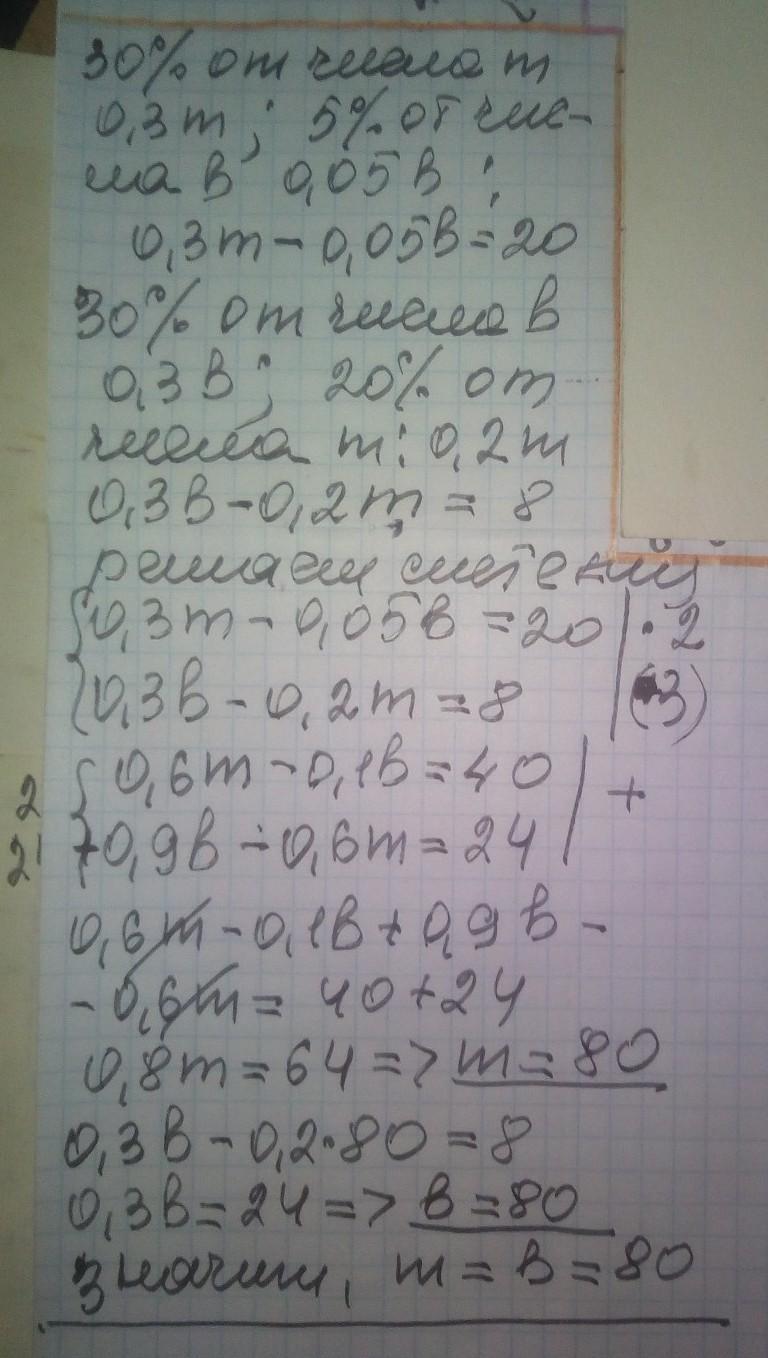 30% от числа m
0,3m; 5% от чис-
ла в 0,05в ;
0,3m - 0,05в = 20
30% от числа в
0,3в; 20% от
числа m: 0,2m
0,3в - 0,2m = 8
решаем систему
{0,3m - 0,05в = 20 | · 2
{0,3в - 0,2m = 8 | (3)
{0,6m - 0,1в = 40 | +
{+0,9в - 0,6m = 24 |
0,6m - 0,1в + 0,9в -
- 0,6m = 40 + 24
0,8m = 64 => m = 80
0,3в - 0,2·80 = 8
0,3в = 24 => в = 80
Значит, m = в = 80